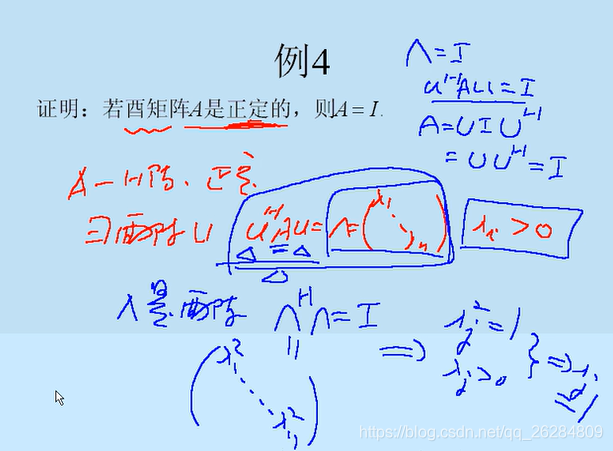 例4
证明：若酉矩阵A是正定的，则A = I.
Λ=I
U^H AU=I
A=UIU^H
=UU^H=I
A-H阵、正定
∃酉阵U U^H AU=Λ=(λ1 ⋱ λn) λi>0
Λ是酉阵 Λ^H Λ=I ⇒ λj^2=1
λj>0 } ⇒ λj=1
(λ1^2 ⋱ λn^2)
https://blog.csdn.net/qq_26284809